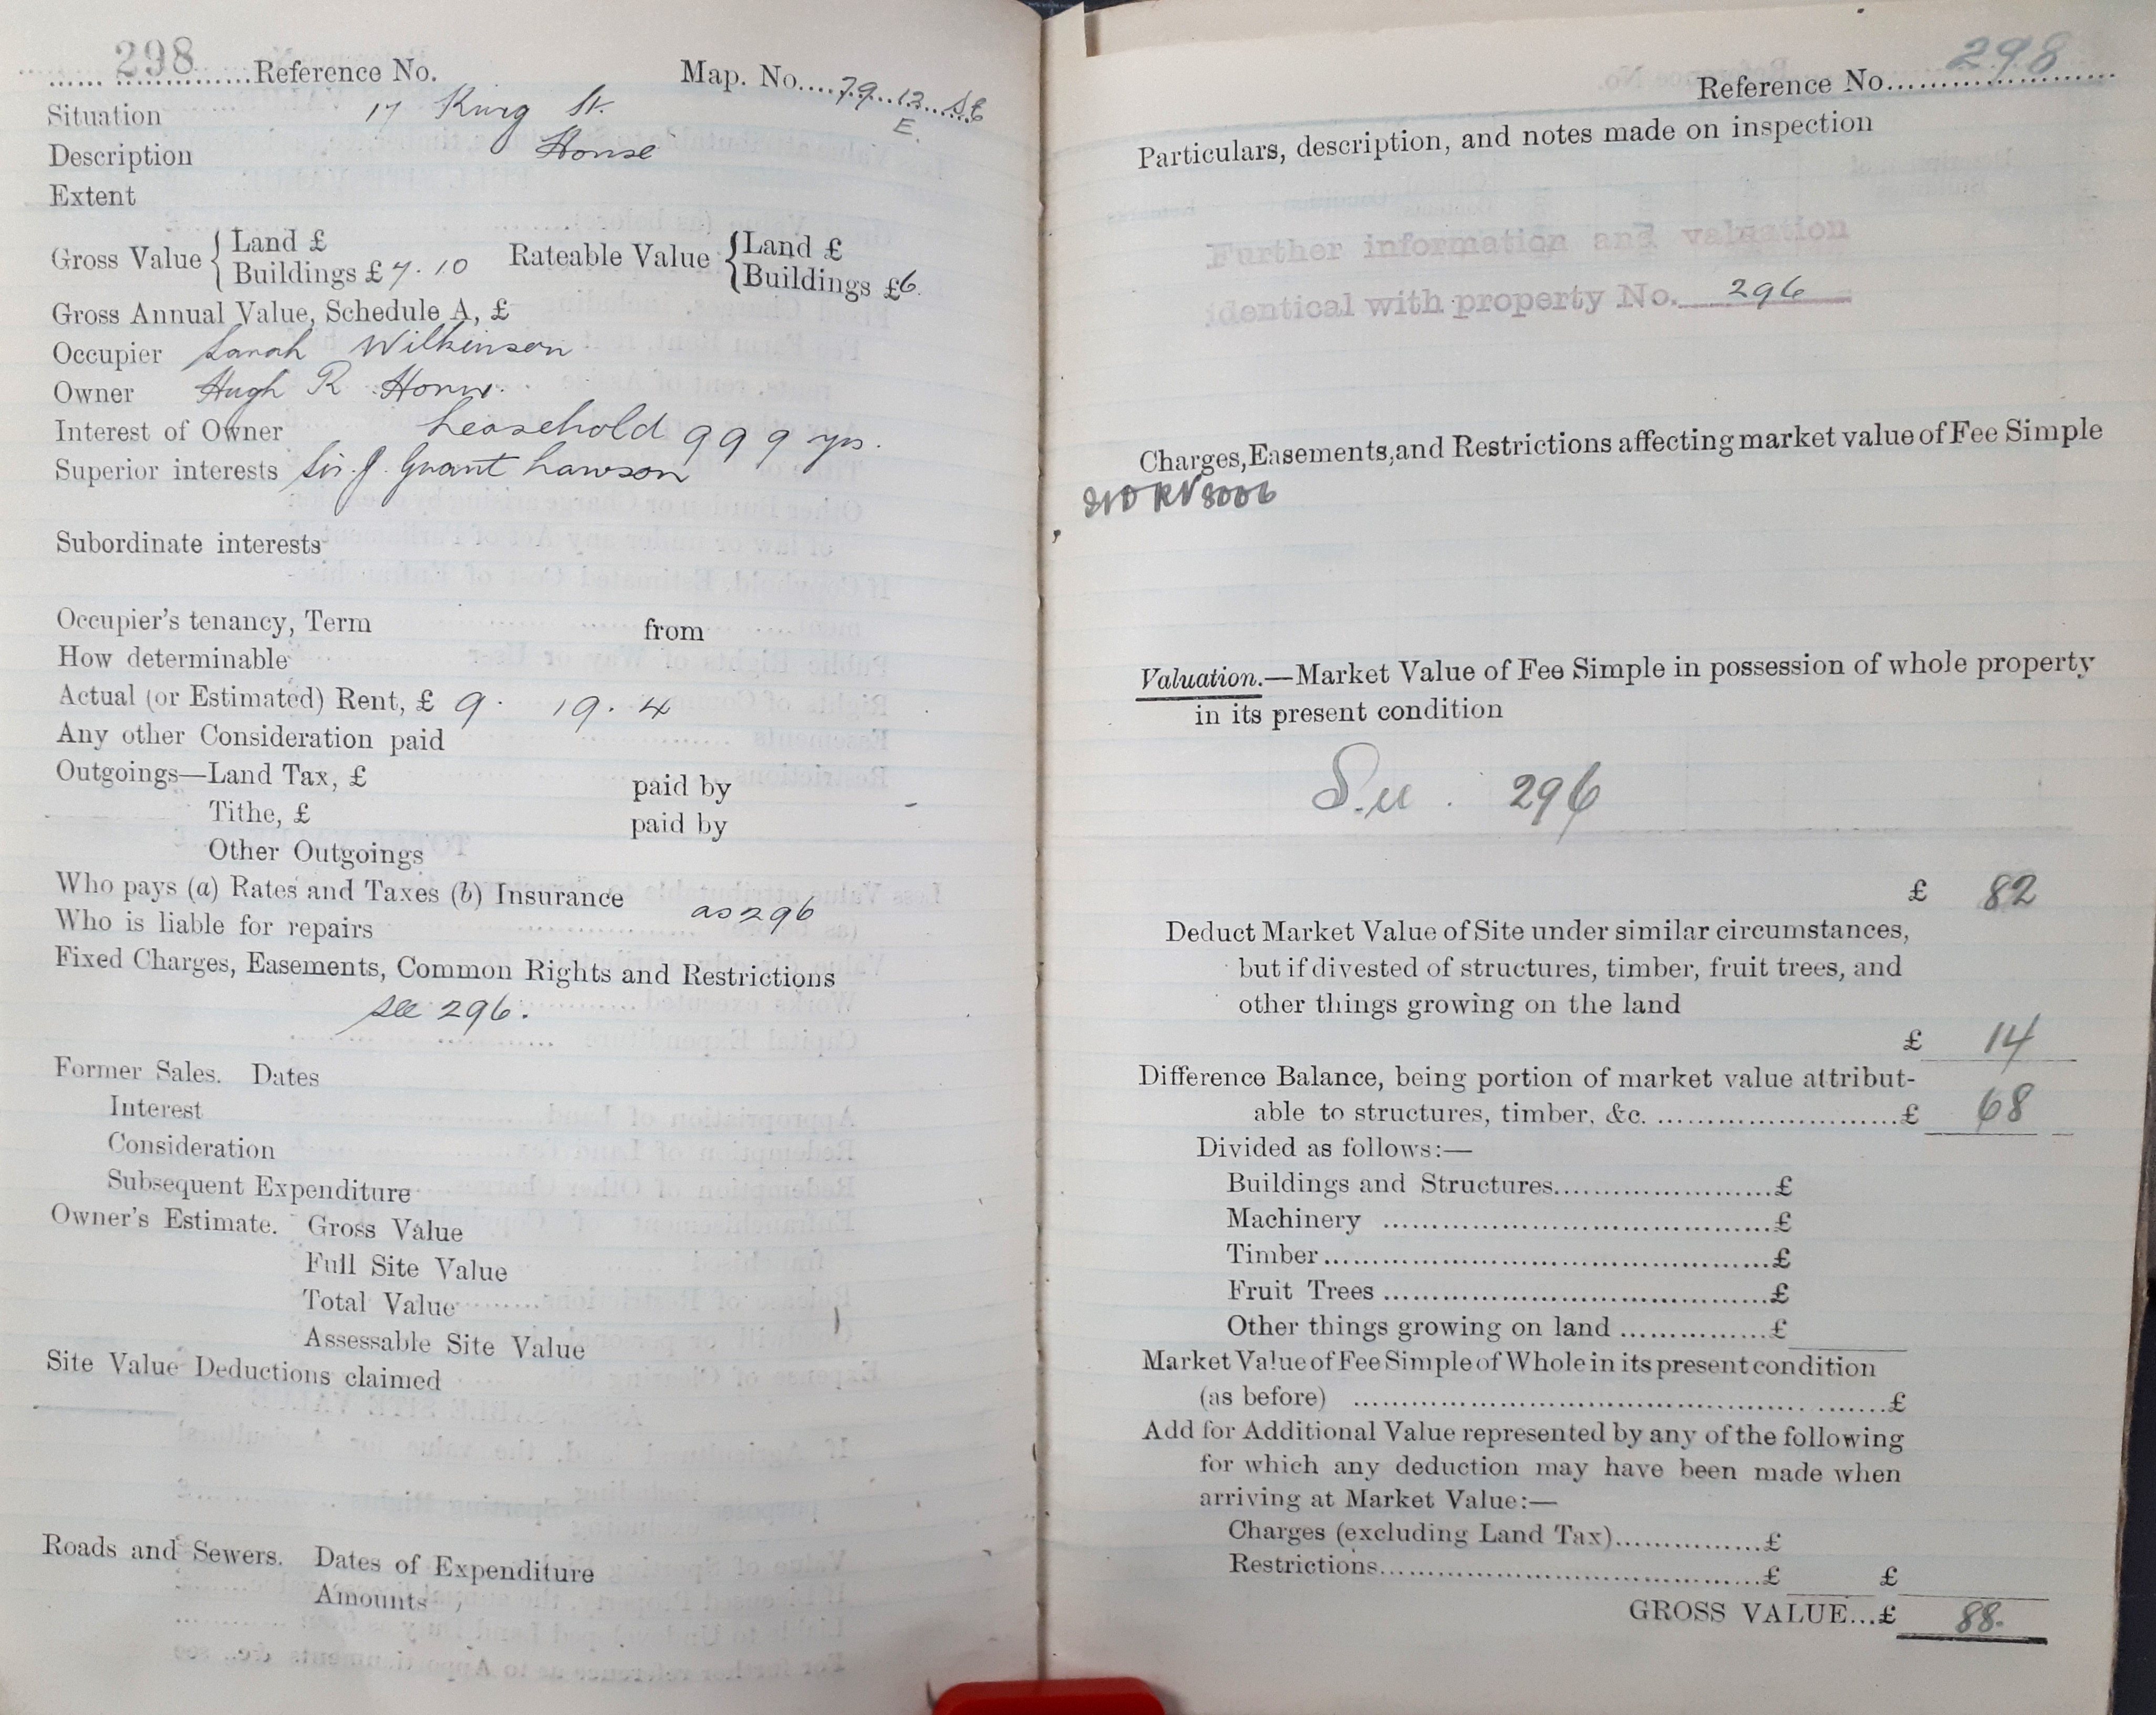 298 Reference No. Map. No. 79.12. SE
E.
Situation 17 King St.
Description House
Extent
Gross Value { Land £
Buildings £ 7.10
Rateable Value { Land £
Buildings £6.
Gross Annual Value, Schedule A, £
Occupier Sarah Wilkinson
Owner Hugh R
Interest of Owner Leasehold 999 yrs.
Superior interests Sir J. Grant Lawson
Subordinate interests
Occupier's tenancy, Term from
How determinable
Actual (or Estimated) Rent, £ 9. 19. 4
Any other Consideration paid
Outgoings—Land Tax, £ paid by
Tithe, £ paid by
Other Outgoings
Who pays (a) Rates and Taxes (b) Insurance as 296
Who is liable for repairs
Fixed Charges, Easements, Common Rights and Restrictions
see 296.
Former Sales. Dates
Interest
Consideration
Subsequent Expenditure
Owner's Estimate. Gross Value
Full Site Value
Total Value
Assessable Site Value
Site Value Deductions claimed
Roads and Sewers. Dates of Expenditure
Amounts
Reference No. 298
Particulars, description, and notes made on inspection
Further information and valuation
identical with property No. 296
Charges, Easements, and Restrictions affecting market value of Fee Simple
Valuation.—Market Value of Fee Simple in possession of whole property
in its present condition
See. 296
£ 82
Deduct Market Value of Site under similar circumstances,
but if divested of structures, timber, fruit trees, and
other things growing on the land
£ 14
Difference Balance, being portion of market value attribut-
able to structures, timber, &c. £ 68
Divided as follows:—
Buildings and Structures £
Machinery £
Timber £
Fruit Trees £
Other things growing on land £
Market Value of Fee Simple of Whole in its present condition
(as before) £
Add for Additional Value represented by any of the following
for which any deduction may have been made when
arriving at Market Value:—
Charges (excluding Land Tax) £
Restrictions £ £
GROSS VALUE...£ 88.